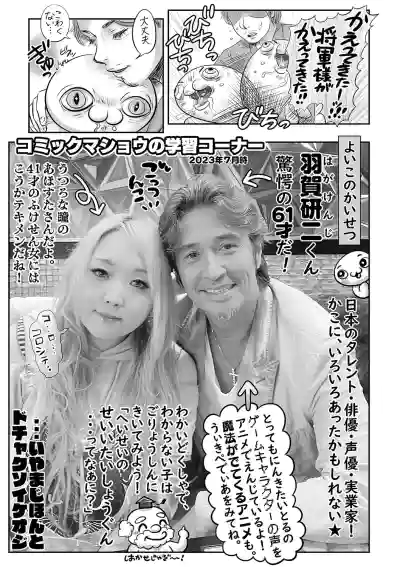 かえってきたー！
将軍様が
かえってきた!!
びちっ
びちっ
びちっ
大丈夫
こわく
ない…
ぎゅっ
コミックマショウの学習コーナー
2023年7月時
よいこのかいせつ
はがけんじ
羽賀研二くん
驚愕の61才だ！
日本のタレント・俳優・声優・実業家！
かこに、いろいろあったかもしれない★
うつろな瞳の
あぽすたさんだよ。
41才のふけせん女には
こうかテキメンだね！
コ…ロ…
コロシテ…
とってもにんきたいとるの
ゲームキャラクターの声を
アニメでえんじているよ！
魔法がでてくるアニメも。
うぃきぺでぃあをみてね。
わかいどくしゃで、
わからない子は
ごりょうしんに
きいてみよう！
「へいせいの
せいいたいしょうぐん
…ってなあに？」
…いやまじほんと
ドチャクソイケオジ